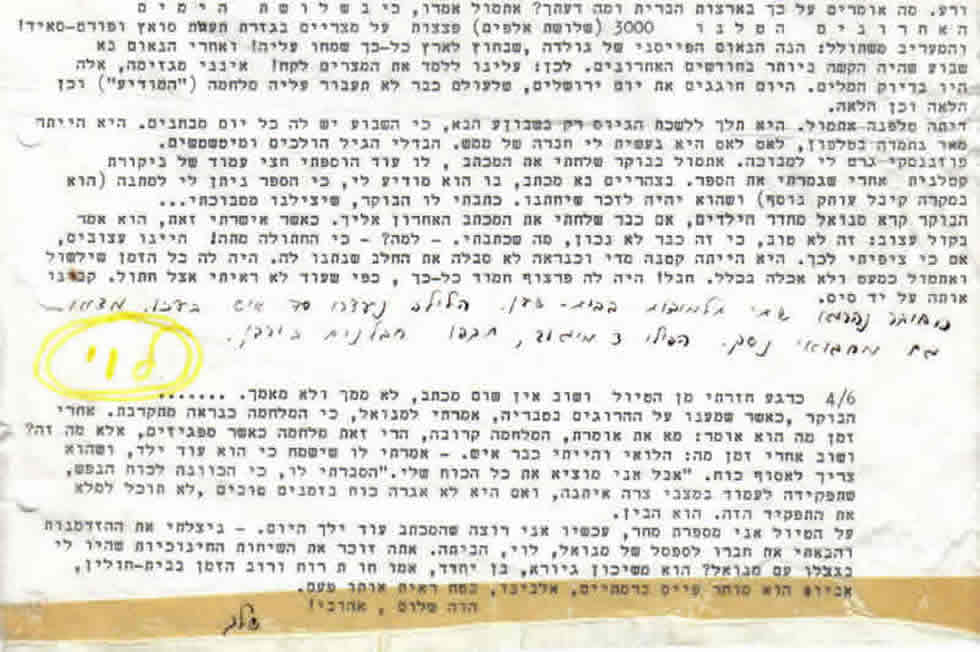 ורע. מה אומרים על כך בארצות הברית ומה דעתך? אתמול אמרו, כי בשלושת הימים
האחרונים הטלנו 3000 (שלושת אלפים) פצצות על מצריים בגזרת תעלת סואץ ופורט-סאיד!
והמעריב משתולל: הנה הנאום הפייסני של גולדה, שבחוץ לארץ כל-כך שמחו עליה! ואחרי הנאום בא
שבוע שהיה הקשה ביותר בחודשים האחרונים. לכן: עלינו ללמד את המצרים לקח! אינני מגזימה, אלה
היו בדיוק המלים. היום חוגגים את יום ירושלים, שלעולם כבר לא תעבור עליה מלחמה ("המודיע") וכן
הלאה וכן הלאה.
דיתה טלפנה אתמול. היא תלך ללשכת הגיוס רק בשבוע הבא, כי השבוע יש לה כל יום מבחנים. היא הייתה
מאד נחמדה בטלפון, לאט לאט היא נעשית לי חברה של ממש. הבדלי הגיל הולכים ומיטשטשים.
גרם לי למבוכה. אתמול בבוקר שלחתי את המכתב, לו עוד הוספתי חצי עמוד של ביקורת
קטלנית אחרי שגמרתי את הספר. בצהריים בא מכתב, בו הוא מודיע לי, כי הספר ניתן לי למתנה (הוא
במקרה קיבל עותק נוסף) ושהוא יהיה לזכר שיחתנו. כתבתי לו הבוקר, שיצילנו ממבוכתי...
הבוקר קרא מנואל מחדר הילדים, אם כבר שלחתי את המכתב האחרון אליך. כאשר אישרתי זאת, הוא אמר
בקול עצוב: זה לא טוב, כי זה כבר לא נכון, מה שכתבתי. - למה? - כי החתולה מתה! היינו עצובים,
אם כי ציפיתי לכך. היא הייתה קטנה מדי וכנראה לא סבלה את החלב שנתנו לה. היה לה כל הזמן שילשול
ואתמול כמעט ולא אכלה בכלל. חבל! היה לה פרצוף חמוד כל-כך, כפי שעוד לא ראיתי אצל חתול. קברנו
אותה על יד סיס.
נהרגו שתי תלמידות בבית-שאן. הלילה נעצרו 70 איש בעכו. מצאו
גם מחבואי נשק. הפילו 3 מיגים, חבלנים בירדן.
לוי
4/6 כרגע חזרתי מן הטיול ושוב אין שום מכתב, לא ממך ולא מאמך. .......
הבוקר, כאשר שמענו על ההרוגים בטבריה, אמרתי למנואל, כי המלחמה כנראה מתקרבת. אחרי
זמן מה הוא אומר: מא את אומרת, המלחמה קרובה, הרי זאת מלחמה כאשר מפגיזים, אלא מה זה?
ושוב אחרי זמן מה: הלואי והייתי כבר איש. - אמרתי לו שישמח כי הוא עוד ילד, ושהוא
צריך לאסוף כוח. "אבל אני מוציא את כל הכוח שלי." הסברתי לו, כי הכוונה לכוח הנפש,
שתפקידה לעמוד במצבי צרה איתנה, ואם היא לא אגרה כוח בזמנים טובים, לא תוכל למלא
את התפקיד הזה. הוא הבין.
על הטיול אני מספרת מחר, עכשיו אני רוצה שהמכתב עוד ילך היום. - ניצלתי את ההזדמנות
והבאתי את חברו לספסל של מנואל, לוי, הביתה. אתה זוכר את השיחות החינוכיות שהיו לי
בגללו עם מנואל? הוא משיכון גיורא, בן יחיד, אמו חו ת רוח ורוב הזמן בבית-חולין,
אביוש הוא סוחר פייס ברמתיים, אלבינו, בטח ראית אותו פעם.
היה שלום, אהובי!
שלך